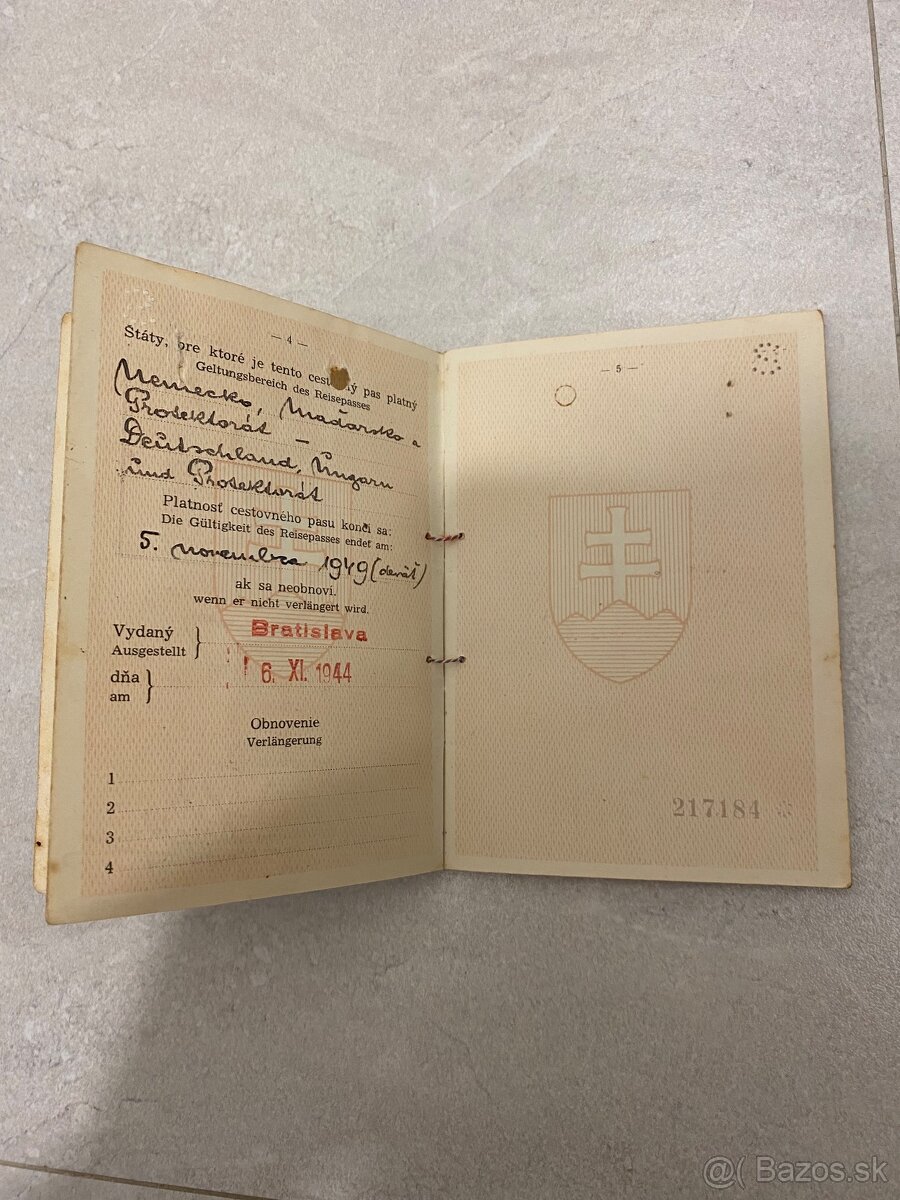 — 4 —
Štáty, pre ktoré je tento cestovný pas platný
Geltungsbereich des Reisepasses
Nemecko, Maďarsko a
Protektorát —
Deutschland, Ungarn
und Protektorát
Platnosť cestovného pasu končí sa:
Die Gültigkeit des Reisepasses endet am:
5. novembra 1949 (deväť)
ak sa neobnoví.
wenn er nicht verlängert wird.
Vydaný } Bratislava
Ausgestellt
dňa } 6. XI. 1944
am
Obnovenie
Verlängerung
1
2
3
4
— 5 —
217184
@( Bazos.sk